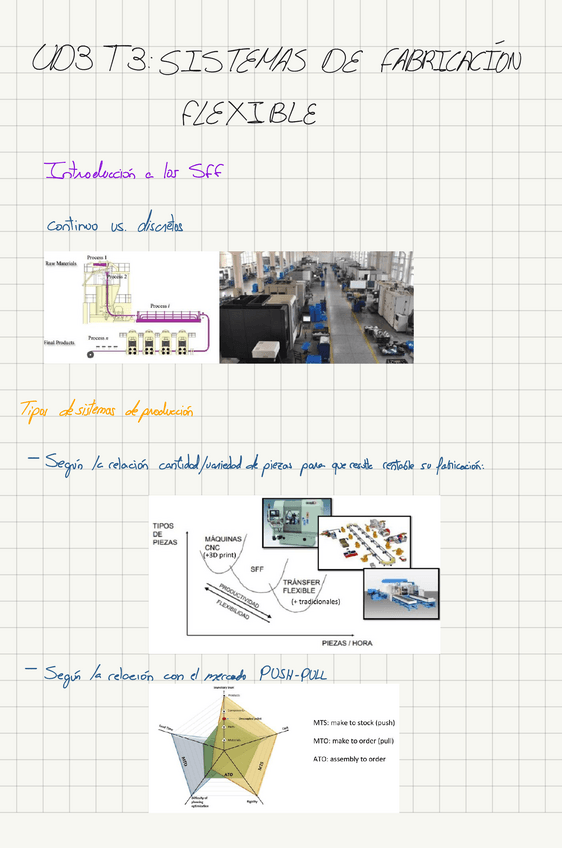 UD3 T3: SISTEMAS DE FABRICACIÓN
FLEXIBLE
Introducción a los SFF
continuo vs. discretos
Raw Materials
Process 1
Process 2
Process i
Final Products
Process n
Tipos de sistemas de producción
- Según la relación cantidad/variedad de piezas para que resulte rentable su fabricación:
TIPOS
DE
PIEZAS
MÁQUINAS
CNC
(+3D print)
SFF
TRÁNSFER
FLEXIBLE
(+ tradicionales)
PRODUCTIVIDAD
FLEXIBILIDAD
PIEZAS / HORA
- Según la relación con el mercado PUSH-PULL
MTO
ATO
MTS
Difficulty of
planning
optimization
Rigidity
MTS: make to stock (push)
MTO: make to order (pull)
ATO: assembly to order